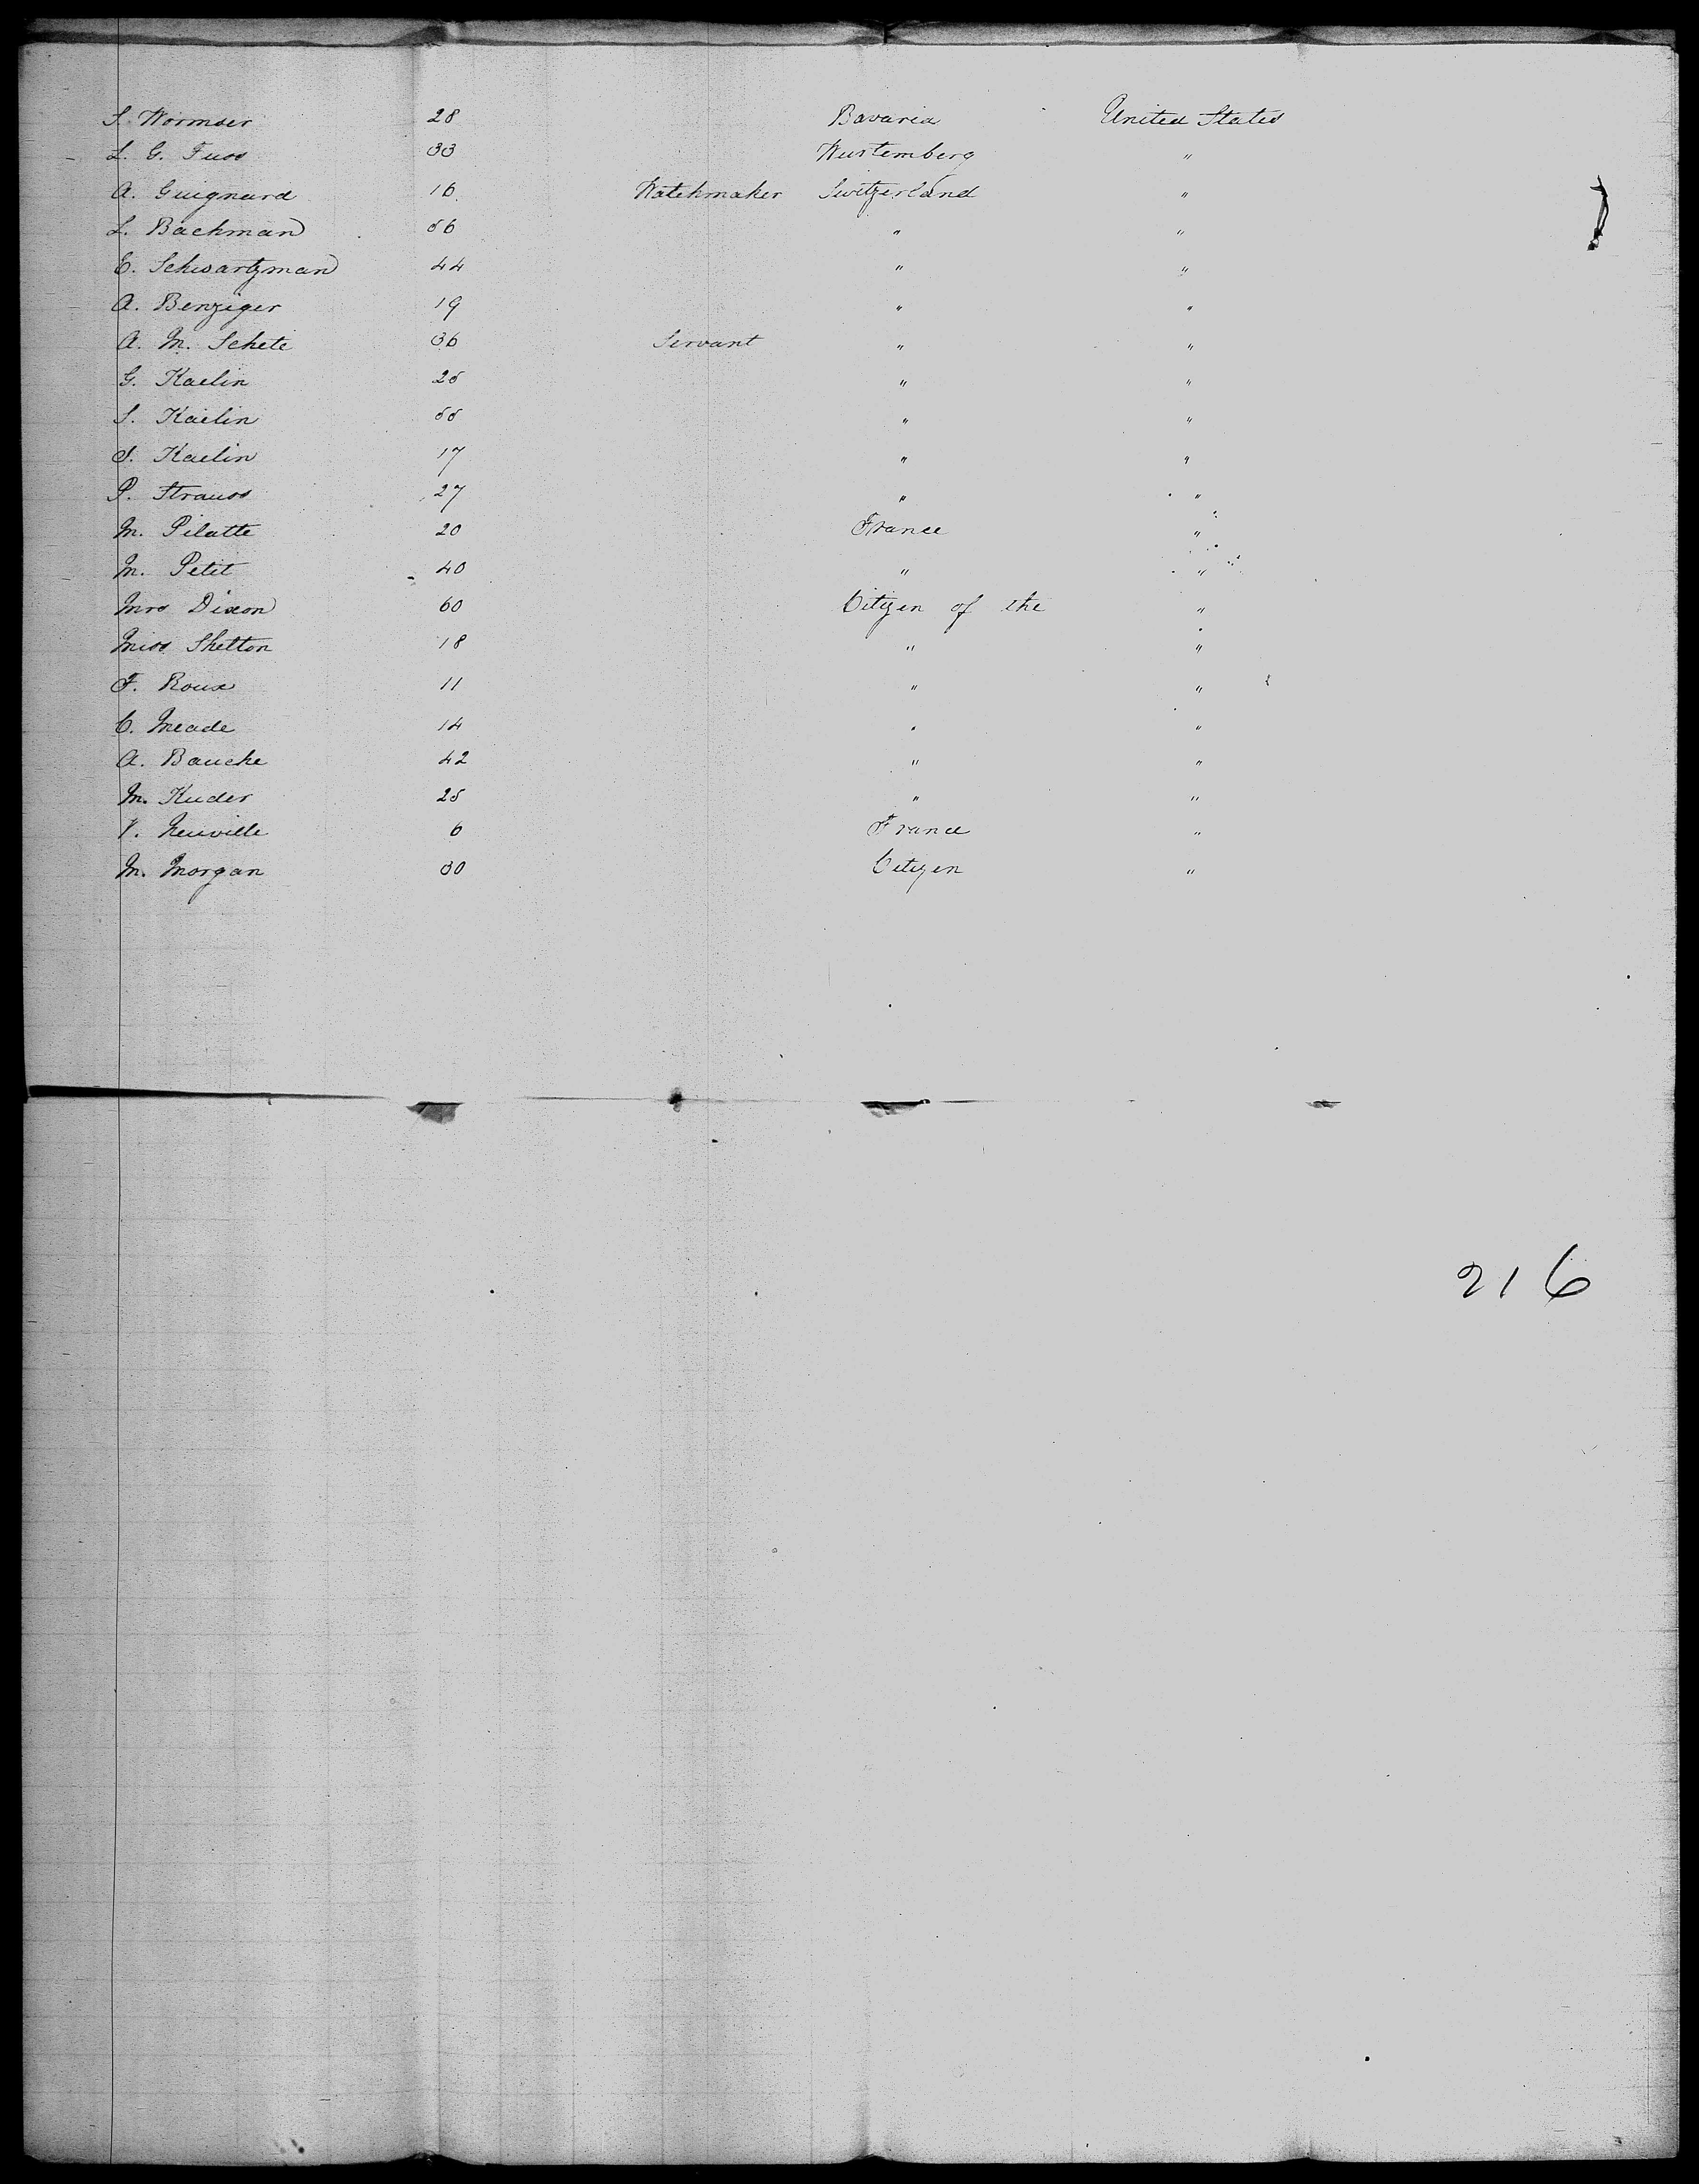 S. Wormser 28 Bavaria United States
L. G. Fuss 33 Wurtemberg "
A. Guignard 16 Watchmaker Switzerland "
L. Bachman 56 " "
E. Schwartzman 44 " "
A. Benziger 19 " "
A. M. Schete 36 Servant " "
G. Kaelin 25 " "
S. Kaelin 55 " "
S. Kaelin 17 " "
P. Strauss 27 " "
M. Pilatte 20 France "
M. Petit 40 " "
Mrs Dixon 60 Citizen of the "
Miss Shelton 18 " "
F. Roux 11 " "
C. Meade 14 " "
A. Bauche 42 " "
M. Kuder 25 " "
V. Neuville 6 France "
M. Morgan 30 Citizen "
216